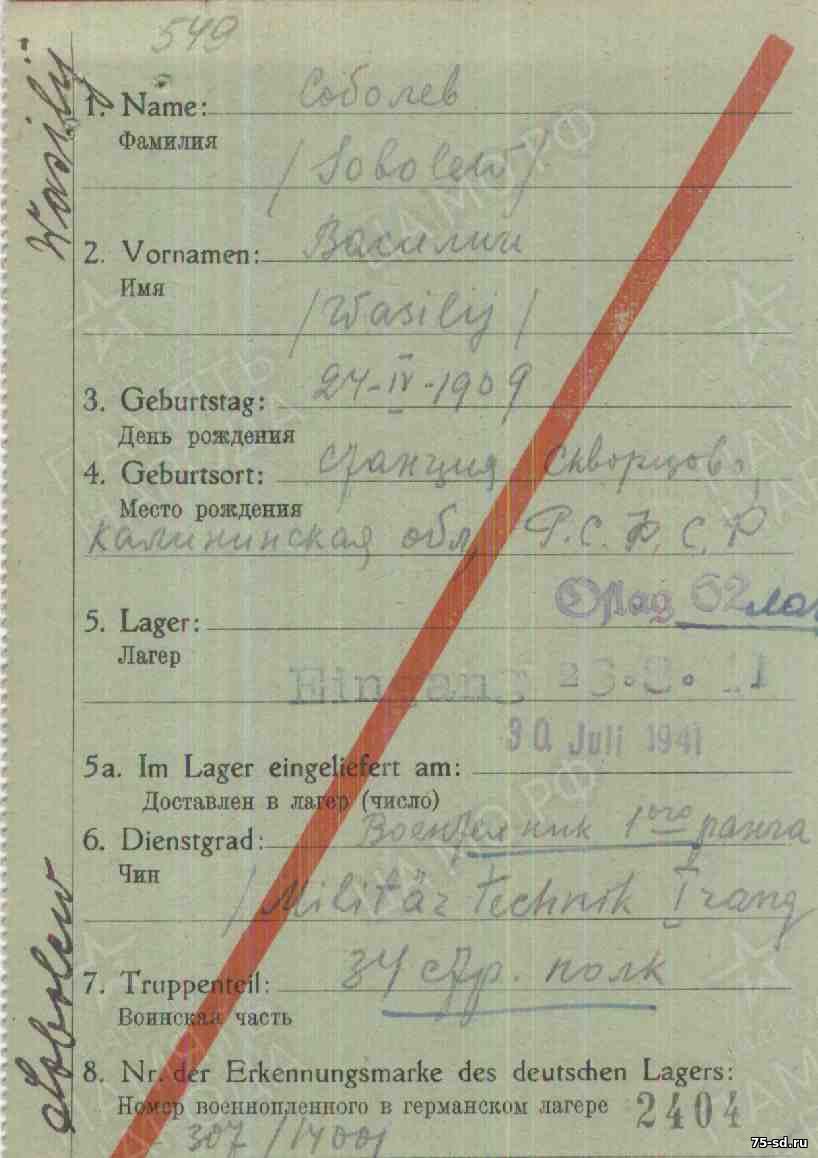 549
Wasilij
1. Name: Соболев
Фамилия
/Sobolew/
2. Vornamen: Василий
Имя
/Wasilij/
3. Geburtstag: 24-IV-1909
День рождения
4. Geburtsort: станция Скворцово,
Место рождения
Калининская обл. Р.С.Ф.С.Р
Oflag 62
5. Lager:
Лагерь
Eingang
30. Juli 1941
5a. Im Lager eingeliefert am:
Доставлен в лагер (число)
6. Dienstgrad: Воентехник 1ого ранга
Чин
/Militär technik I rang
7. Truppenteil: 34 стр. полк
Воинская часть
Sobolew
8. Nr. der Erkennungsmarke des deutschen Lagers:
Номер военнопленного в германском лагере 2404
307/14001
75-sd.ru